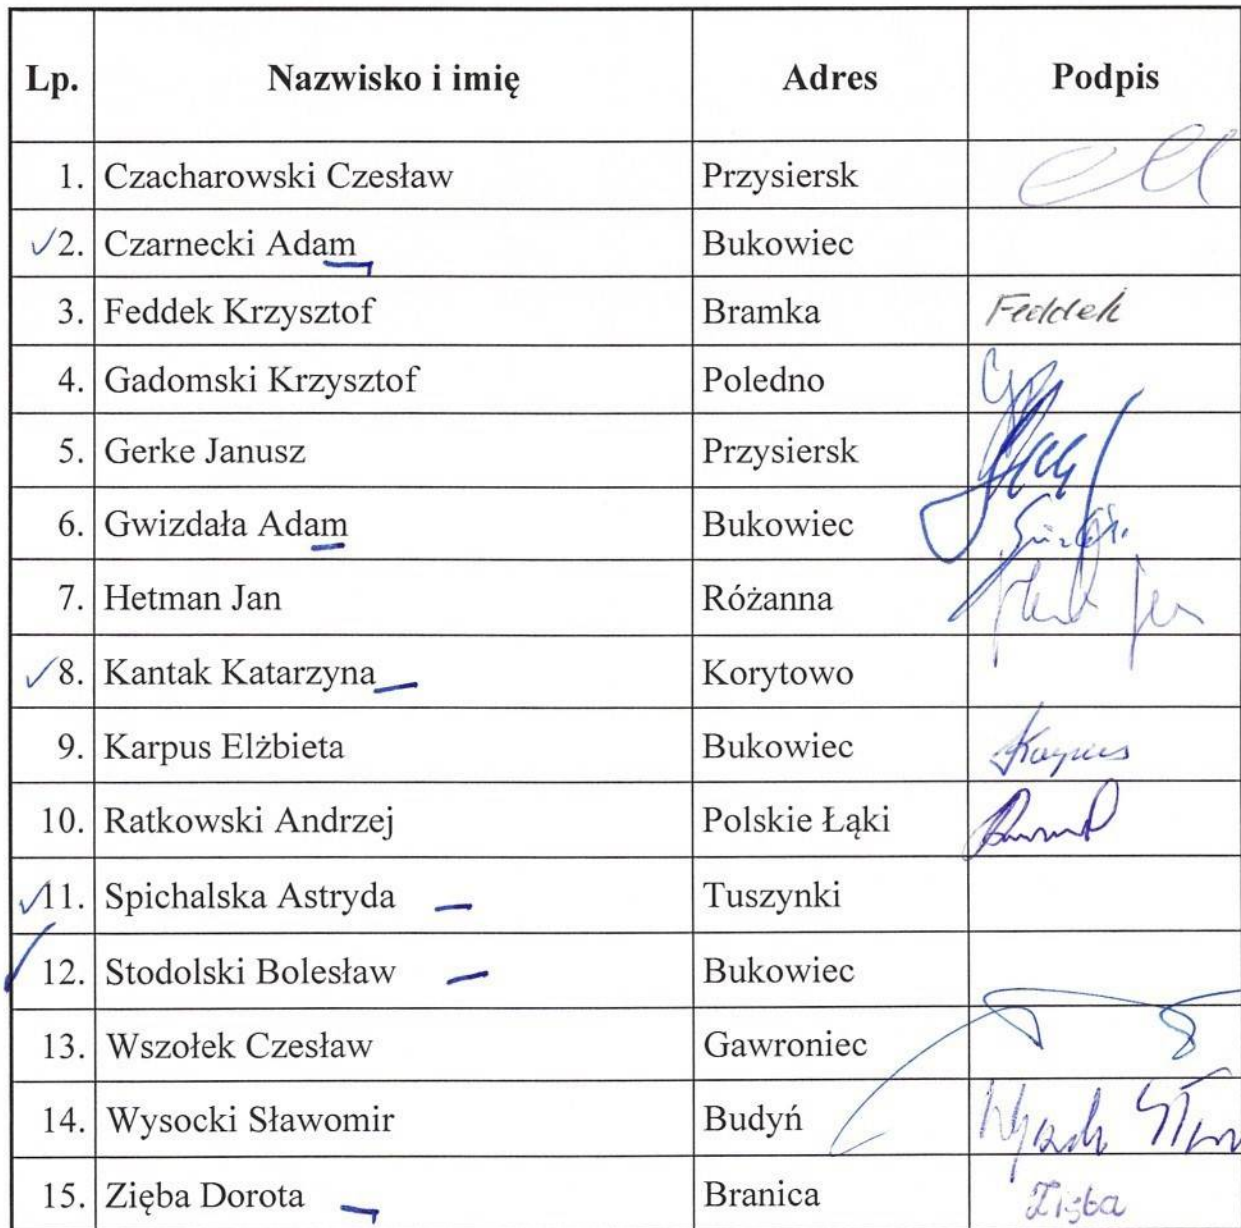 Lp. Nazwisko i imię Adres Podpis
1. Czacharowski Czesław Przysiersk
2. Czarnecki Adam Bukowiec
3. Feddek Krzysztof Bramka Feddek
4. Gadomski Krzysztof Poledno
5. Gerke Janusz Przysiersk
6. Gwizdała Adam Bukowiec
7. Hetman Jan Różanna
8. Kantak Katarzyna Korytowo
9. Karpus Elżbieta Bukowiec Karpus
10. Ratkowski Andrzej Polskie Łąki
11. Spichalska Astryda Tuszynki
12. Stodolski Bolesław Bukowiec
13. Wszołek Czesław Gawroniec
14. Wysocki Sławomir Budyń
15. Zięba Dorota Branica Zięba